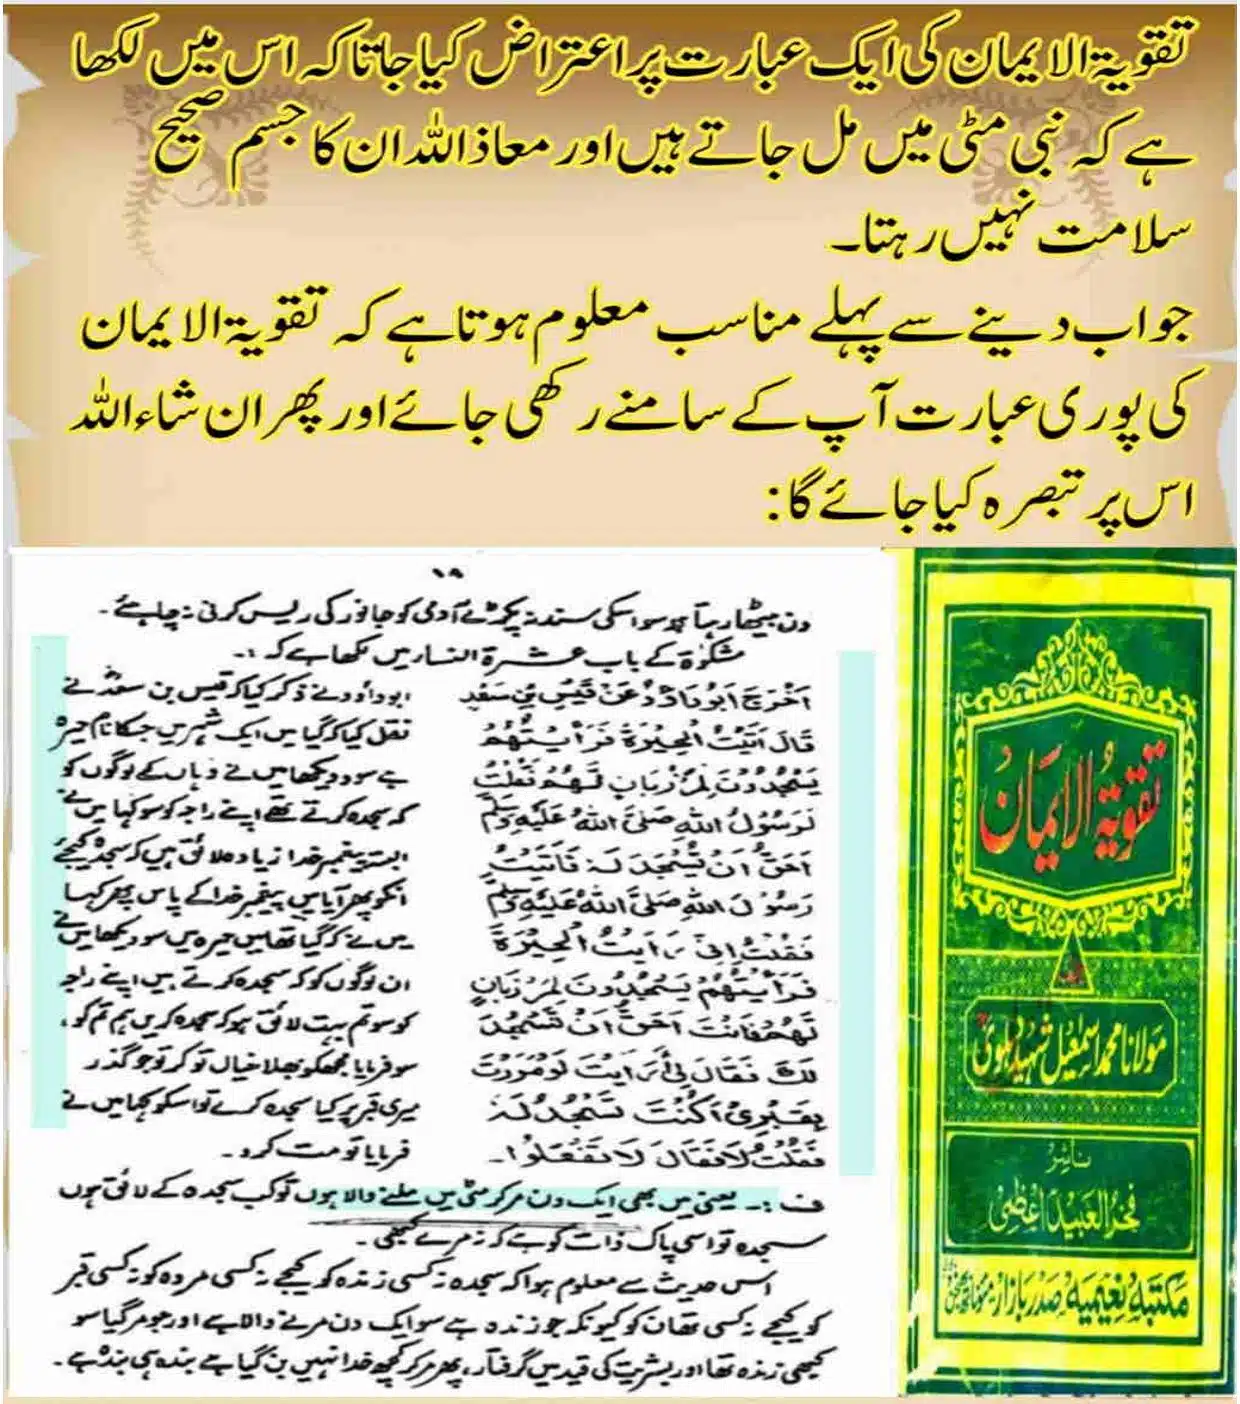 تقویۃ الایمان کی ایک عبارت پر اعتراض کیا جاتا کہ اس میں لکھا
ہے کہ نبی مٹی میں مل جاتے ہیں اور معاذ اللہ ان کا جسم صحیح
سلامت نہیں رہتا۔
جواب دینے سے پہلے مناسب معلوم ہوتا ہے کہ تقویۃ الایمان
کی پوری عبارت آپ کے سامنے رکھی جائے اور پھر ان شاء اللہ
اس پر تبصرہ کیا جائے گا:
۱۹
دن بیٹھا رہتا ہو سو اسکی سند نہ پکڑے آدمی کو جانور کی ریس کرنی نہ چاہئے۔
مشکوٰۃ کے باب عشرۃ النساء میں لکھا ہے کہ :۔
اَخْرَجَ اَبُوْدَاوٗدُ عَنْ قَیْسِ بْنِ سَعْدٍ
قَالَ اَتَیْتُ الْحِیْرَۃَ فَرَاَیْتُھُمْ
یَسْجُدُوْنَ لِمَرْزُبَانٍ لَّھُمْ فَقُلْتُ
لَرَسُوْلُ اللہِ صَلَّی اللہُ عَلَیْہِ وَسَلَّمَ
اَحَقُّ اَنْ یُّسْجَدَ لَہٗ فَاَتَیْتُ
رَسُوْلَ اللہِ صَلَّی اللہُ عَلَیْہِ وَسَلَّمَ
فَقُلْتُ اِنِّیْ رَاَیْتُ الْحِیْرَۃَ
فَرَاَیْتُھُمْ یَسْجُدُوْنَ لِمَرْزُبَانٍ
لَّھُمْ فَاَنْتَ اَحَقُّ اَنْ نَّسْجُدَ
لَکَ فَقَالَ لِیْ اَرَاَیْتَ لَوْ مَرَرْتَ
بِقَبْرِیْ اَکُنْتَ تَسْجُدُ لَہٗ
فَقُلْتُ لَا فَقَالَ لَا تَفْعَلُوْا۔
ابوداؤد نے ذکر کیا کہ قیس بن سعدؓ نے
نقل کیا کہ گیا میں ایک شہر میں جسکا نام حیرہ
ہے سو دیکھا میں نے وہاں کے لوگوں کو
کہ سجدہ کرتے تھے اپنے راجہ کو سو کہا میں نے
البتہ پیغمبر خدا زیادہ لائق ہیں کہ سجدہ کیجئے
انکو پھر آیا میں پیغمبر خدا کے پاس پھر کہا
میں نے کہ گیا تھا میں حیرہ میں سو دیکھا میں نے
ان لوگوں کو کہ سجدہ کرتے ہیں اپنے راجہ
کو سو تم بہت لائق ہو کہ سجدہ کریں ہم تم کو،
سو فرمایا مجھکو بھلا خیال تو کر تو جو گذر
میری قبر پر کیا سجدہ کرے تو اسکو کہا میں نے
فرمایا تو مت کرو۔
ف :۔ یعنی میں بھی ایک دن مر کر مٹی میں ملنے والا ہوں تو کب سجدہ کے لائق ہوں
سجدہ تو اسی پاک ذات کو ہے کہ نہ مرے کبھی۔
اس حدیث سے معلوم ہوا کہ سجدہ نہ کسی زندہ کو کیجے نہ کسی مردہ کو نہ کسی قبر
کو کیجے نہ کسی تھان کو کیونکہ جو زندہ ہے سو ایک دن مرنے والا ہے اور جو مر گیا سو
کبھی زندہ تھا اور بشریت کی قید میں گرفتار، پھر مر کر کچھ خدا نہیں بن گیا ہے بندہ ہی بندہ ہے۔
تقویۃ الایمان
مولانا محمد اسمٰعیل شہید دہلویؒ
ناشر
فخر العبید اعظمی
مکتبہ نعیمیہ صدر بازار